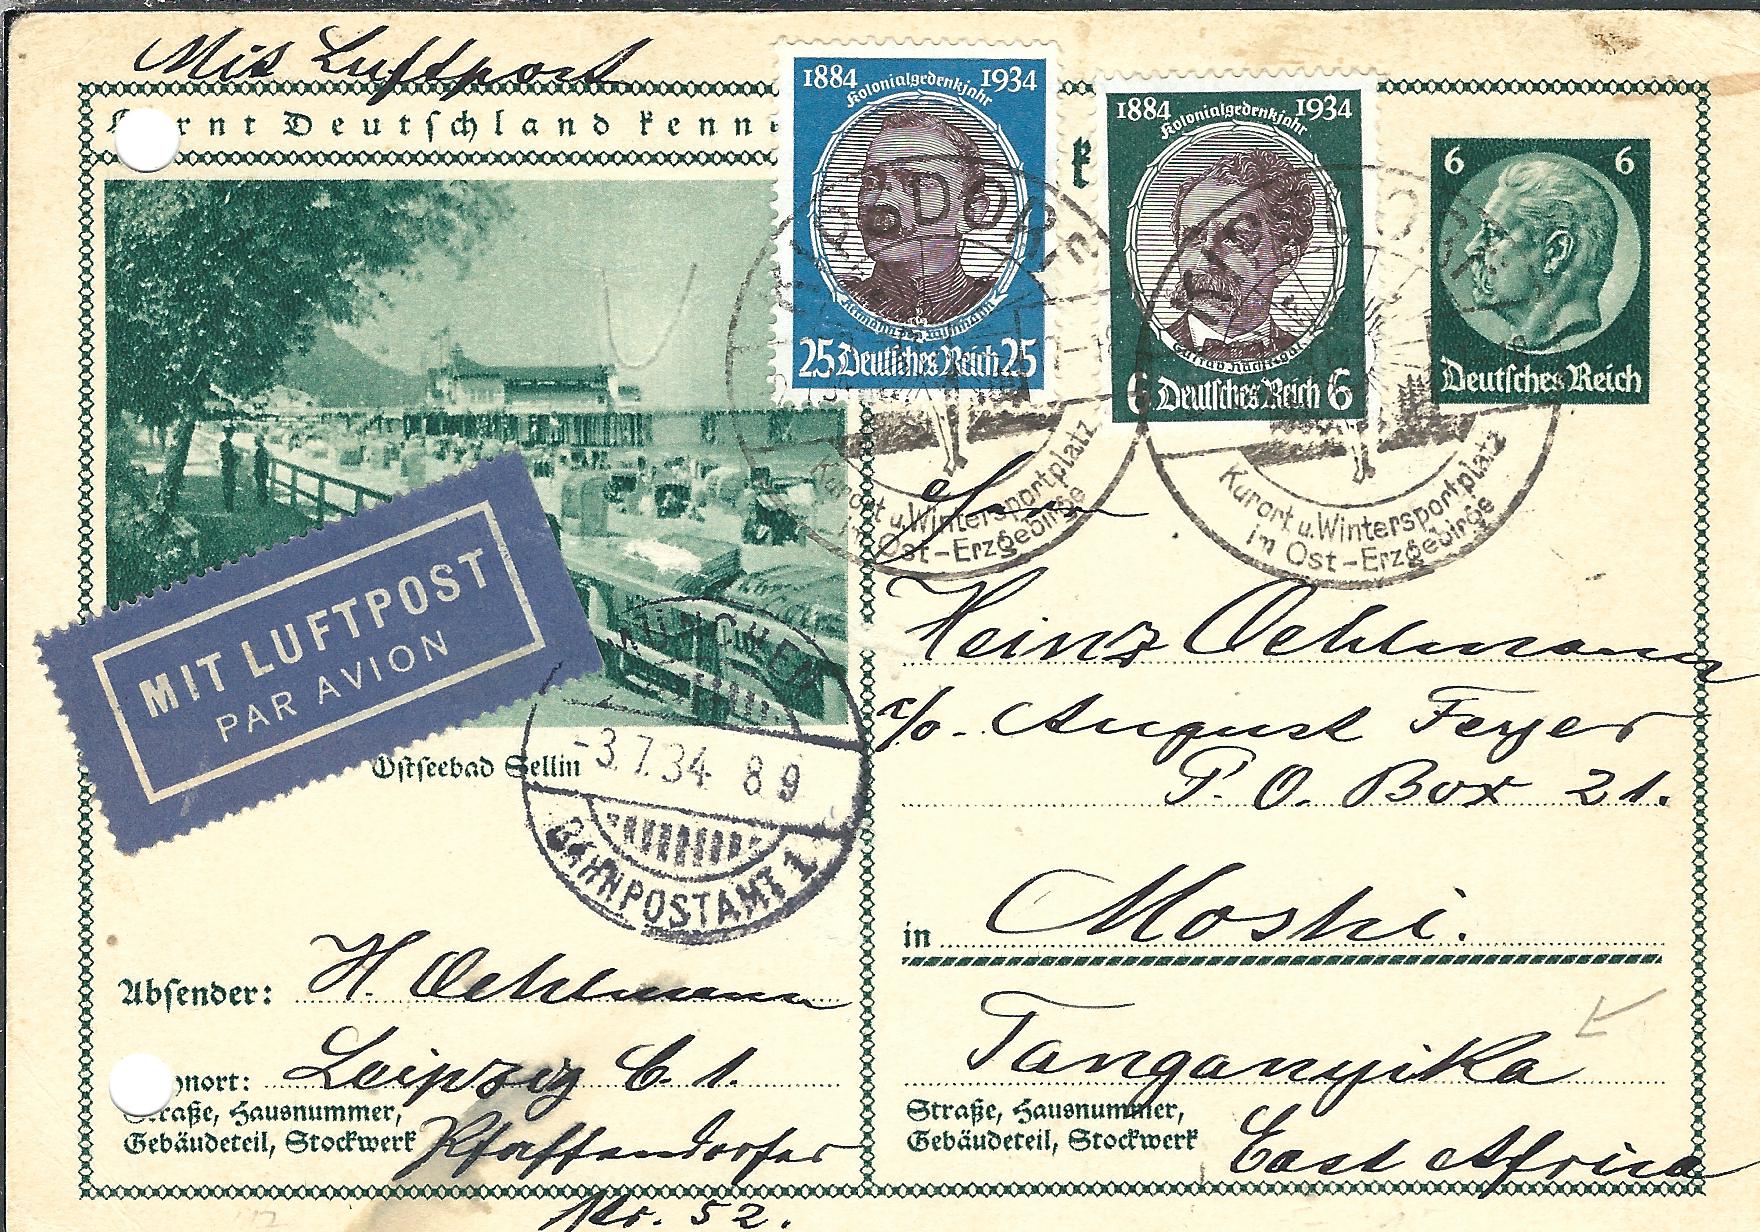 Mit Luftpost
rnt Deutschland kenne
1884 Kolonialgedenkjahr 1934
25 Deutsches Reich 25
1884 Kolonialgedenkjahr 1934
6 Deutsches Reich 6
6 6
Deutsches Reich
Kurort u. Wintersportplatz
in Ost-Erzgebirge
Kurort u. Wintersportplatz
in Ost-Erzgebirge
MIT LUFTPOST
PAR AVION
Ostseebad Sellin
MÜNCHEN
-3.7.34 8 9
BAHNPOSTAMT 1
Absender: H. Oehlmann
nort: Leipzig C. 1.
Straße, Hausnummer,
Gebäudeteil, Stockwerk Pfaffendorfer
Nr. 52.
Heinz Oehlmann
c/o. August Feyer
P. O. Box 21.
in Moshi.
Tanganyika
Straße, Hausnummer,
Gebäudeteil, Stockwerk East Africa